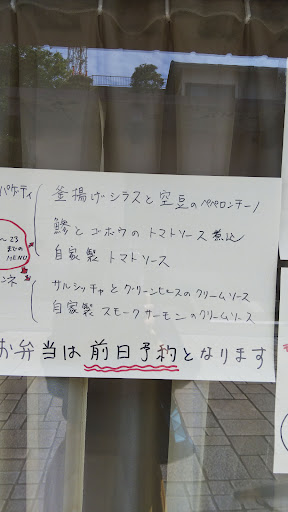 パゲティ
釜揚げシラスと空豆のペペロンチーノ
鯵とゴボウのトマトソース煮込
～23
までの
MENU
自家製 トマトソース
ンネ
サルシッチャとグリーンピースのクリームソース
自家製 スモークサーモンのクリームソース
お弁当は 前日予約となります